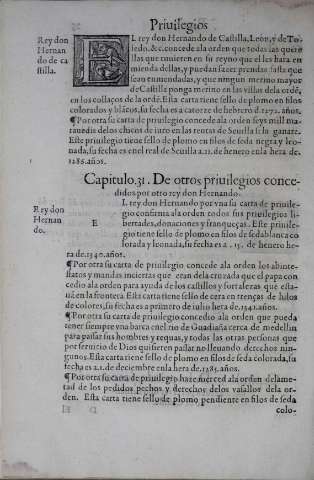 Priuilegios
Rey don
Hernan
do de ca
stilla.
EL rey don Hernando de Castilla, Leon, y de To-
ledo, &c. concede ala orden que todas las quere
llas que tuuieren en su reyno que el les hara en
mienda dellas, y puedan fazer prendas fasta que
sean enmendadas, y que ningun merino mayor
de Castilla ponga merino en las villas dela ordē,
en los collaços de la ordē. Esta carta tiene sello de plomo en filos
colorados y blācos, su fecha es a catorze de hebrero d. 1272. años.
¶Por otra su carta de priuilegio concede ala orden seys mill ma
rauedis delos chicos de juro en las rentas de Seuilla si la ganare.
Este priuilegio tiene sello de plomo en filos de seda negra y leo-
nada, su fecha es en el real de Seuilla a. 21. de henero en la hera de.
1285. años.
Capitulo. 31. De otros priuilegios conce-
didos por otro rey don Hernando.
Rey don
Hernan
do.
E
L rey don Hernando por vna su carta de priuile-
gio confirma ala orden todos sus priuilegios li-
bertades, donaciones y franquezas. Este priuile-
gio tiene sello de plomo en filos de seda blanca co
lorada y leonada, su fecha es a . 15. de henero he-
ra de. 1340. años.
¶Por otra su carta de priuilegio concede ala orden los abinte-
status y mandas inciertas que eran dela cruzada que el papa con
cedio ala orden para ayuda de los castillos y fortalezas que esta-
uā en la frontera. Esta carta tiene sello de cera en trenças de hilos
de colores, su fecha es a primero de iulio hera de. 1342. años.
¶Por otra su carta de priuilegio concedio ala orden que pueda
tener siempre vna barca en el rio de Guadiana cerca de medellin
para passar sus hombres y requas, y todas las otras personas que
por seruicio de Dios quisieren passar no lleuando derechos nin-
gunos. Esta carta tiene sello de plomo en filos de seda colorada, su
fecha es a. 1. de deciembre en la hera de. 1285. años.
¶Por otra su carta de priuilegio haze merced ala orden dela me-
tad de los pedidos pechos y derechos delos vasallos dela or-
den. Esta carta tiene sello de plomo pendiente en filos de seda
colo-